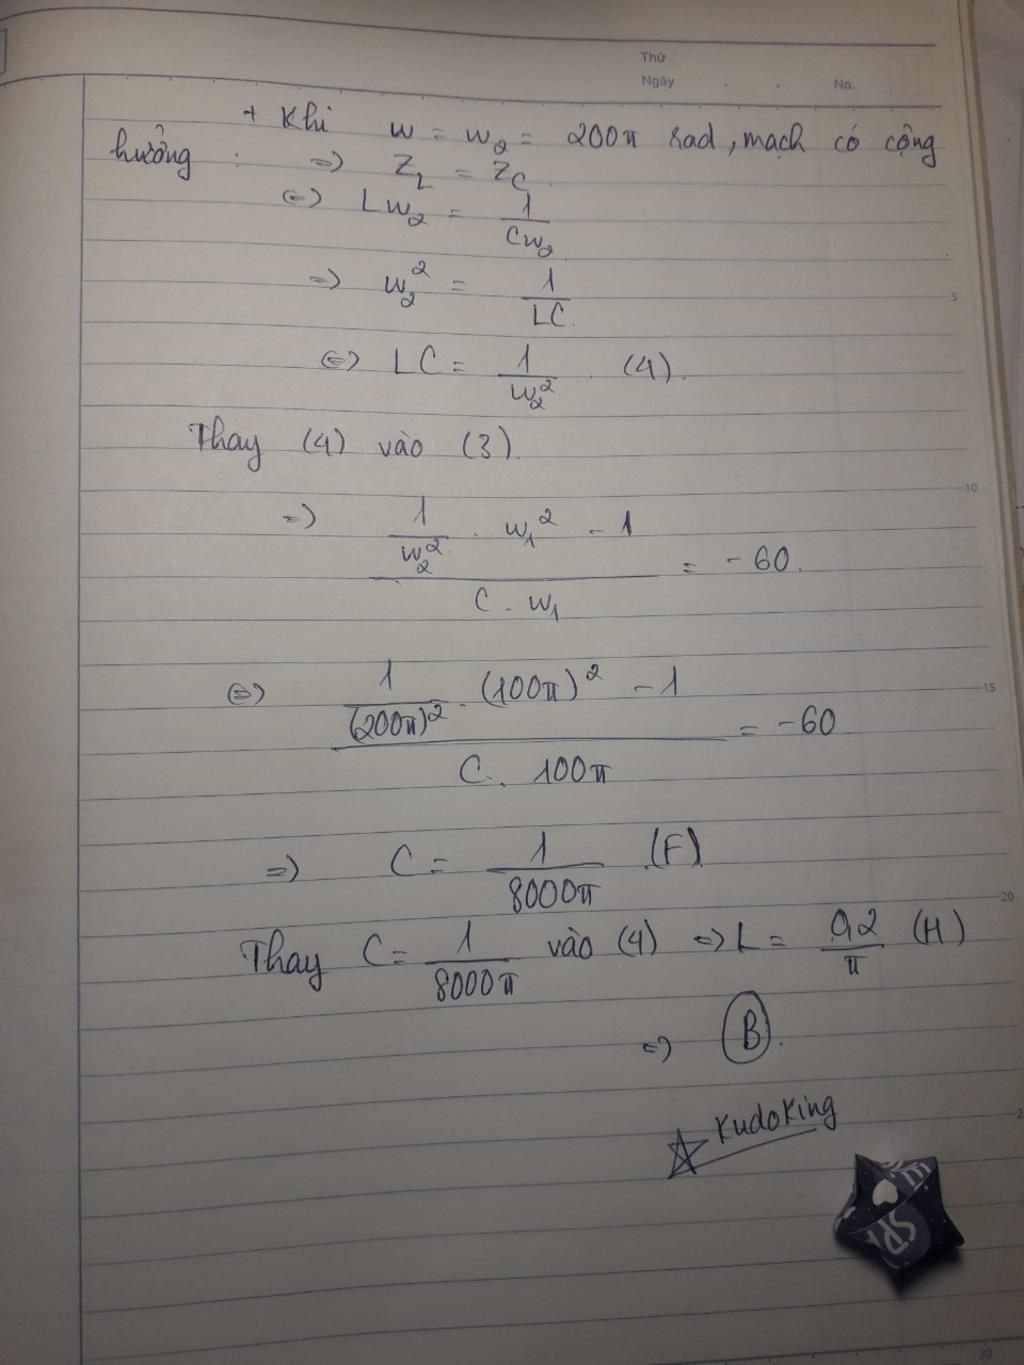 Thứ
Ngày . . No.
+ Khi w = w₂ = 200π rad, mạch có cộng
hưởng : => Z_L = Z_C
<=> Lw₂ = 1/(Cw₂)
=> w₂² = 1/(LC)
<=> LC = 1/w₂² (4).
Thay (4) vào (3).
=> (1/w₂² . w₁² - 1)/(C . w₁) = -60.
<=> (1/(200π)² . (100π)² - 1)/(C . 100π) = -60
=> C = 1/(8000π) (F)
Thay C = 1/(8000π) vào (4) => L = 0,2/π (H)
=> B.
KudoKing
5
10
15
20